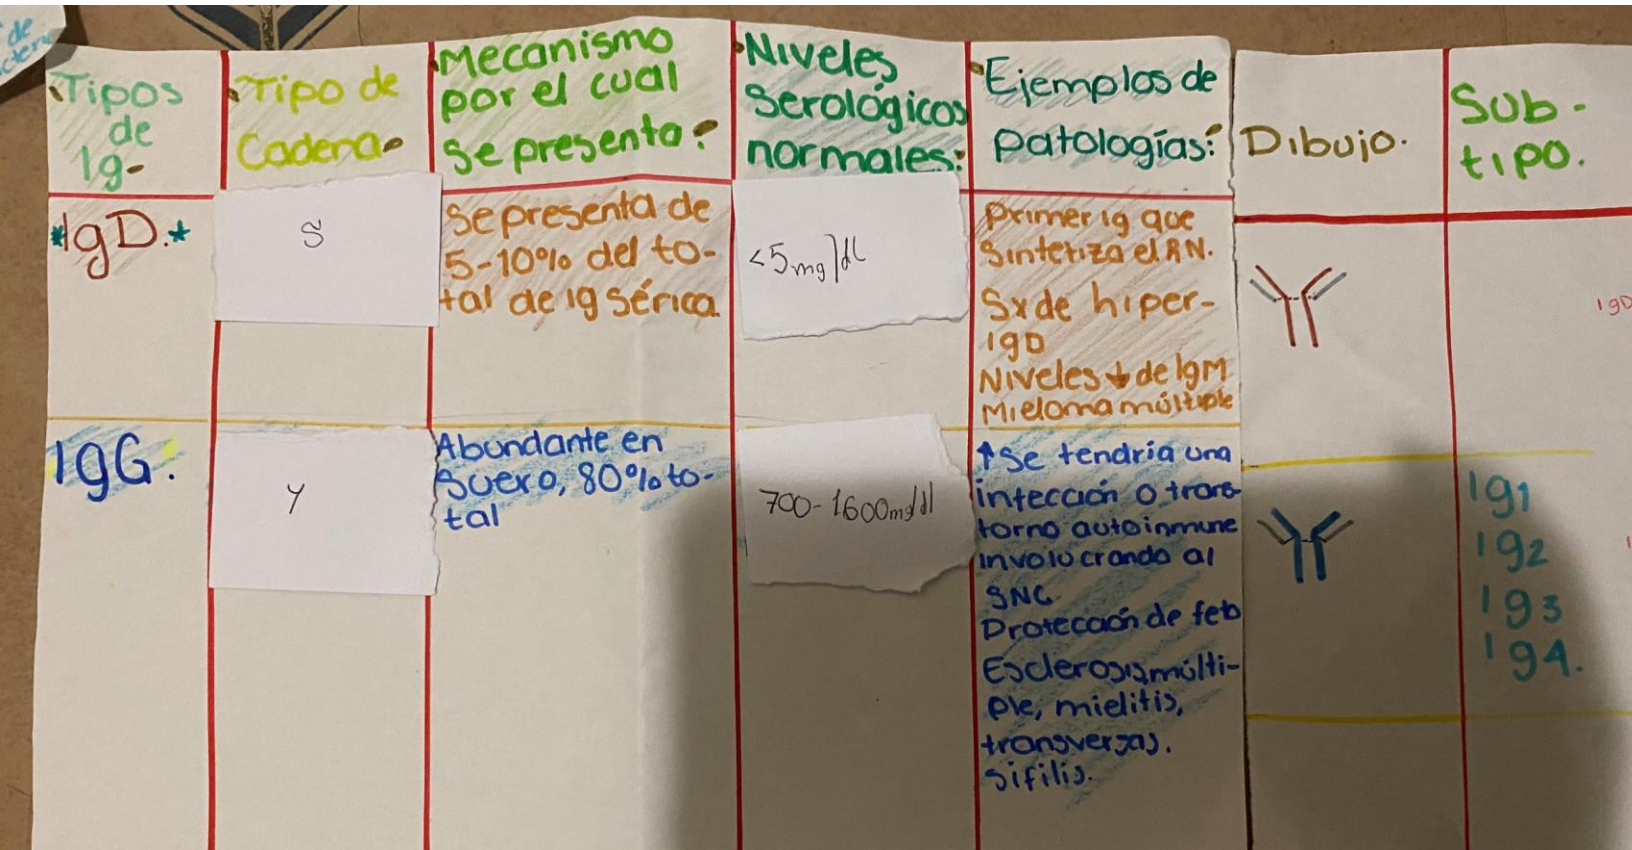 de
Tipos
de
Ig-
Tipo de
Cadena
Mecanismo
por el cual
se presenta?
Niveles
Serológicos
normales:
Ejemplos de
patologías:
Dibujo.
Sub-
tipo.
*IgD.*
S
Se presenta de
5-10% del to-
tal de ig sérica
<5mg/dl
Primer ig que
Sintetiza el RN.
Sx de hiper-
igD
Niveles ↓ de IgM
Mieloma múltiple
IgD
IgG.
γ
Abundante en
Suero, 80% to-
tal
700-1600mg/dl
↑Se tendría una
infección o trans-
torno autoinmune
involucrando al
SNC
Protección de feto
Esclerosis múlti-
ple, mielitis,
transversas.
Sifilis.
Ig1
Ig2
Ig3
Ig4.